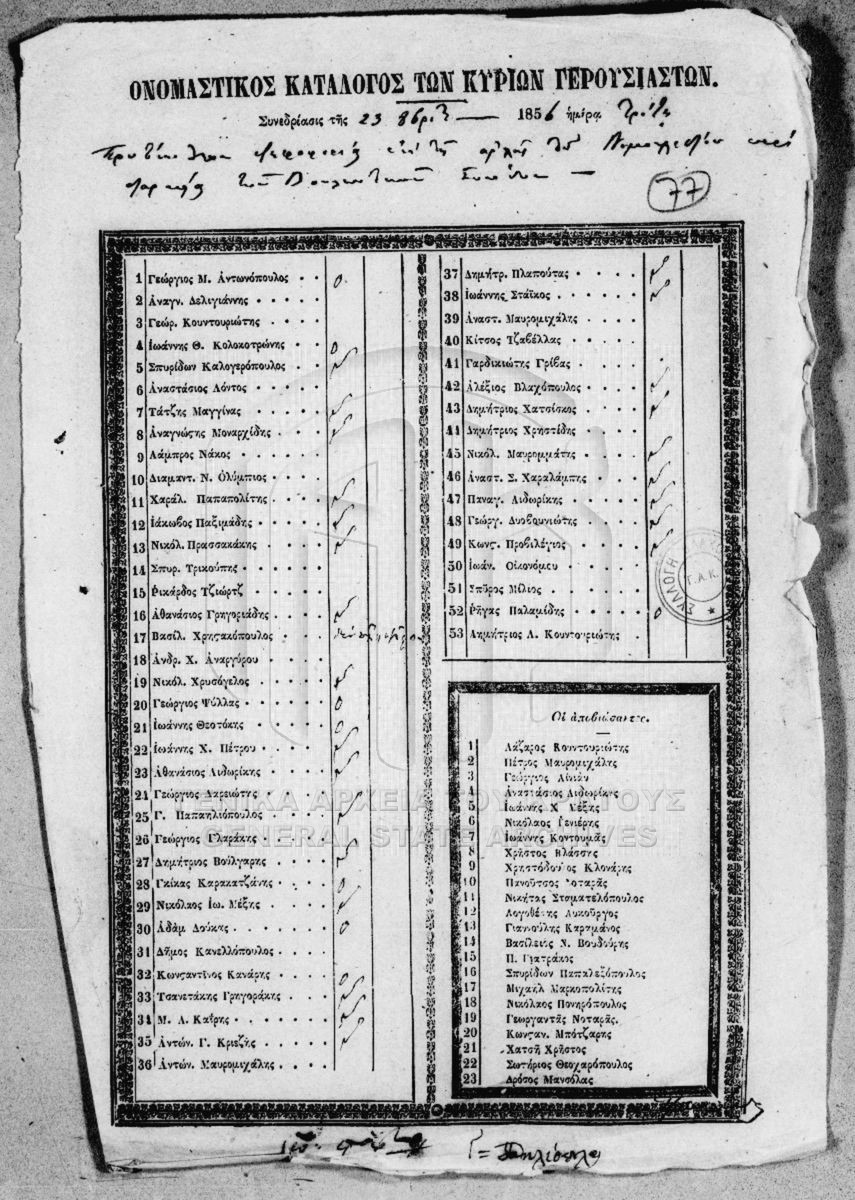 ΟΝΟΜΑΣΤΙΚΟΣ ΚΑΤΑΛΟΓΟΣ ΤΩΝ ΚΥΡΙΩΝ ΓΕΡΟΥΣΙΑΣΤΩΝ.
Συνεδρίασις τῆς 23 8βρίου 1856 ἡμέρα Τρίτη
77
1 Γεώργιος Μ. Ἀντωνόπουλος
2 Ἀναγν. Δεληγιάννης
3 Γεώρ. Κουντουριώτης
4 Ἰωάννης Θ. Κολοκοτρώνης
5 Σπυρίδων Καλογερόπουλος
6 Ἀναστάσιος Λόντος
7 Τάτζης Μαγγίνας
8 Ἀναγνώστης Μοναρχίδης
9 Λάμπρος Νάκος
10 Διαμαντ. Ν. Ὀλύμπιος
11 Χαράλ. Παπαπολίτης
12 Ἰάκωβος Παξιμάδης
13 Νικόλ. Πρασσακάκης
14 Σπυρ. Τρικούπης
15 Ῥικάρδος Τζιώρτζ
16 Ἀθανάσιος Γρηγοριάδης
17 Βασίλ. Χρηστακόπουλος
18 Ἀνδρ. Χ. Ἀναργύρου
19 Νικόλ. Χρυσόγελος
20 Γεώργιος Ψύλλας
21 Ἰωάννης Θεοτόκης
22 Ἰωάννης Χ. Πέτρου
23 Ἀθανάσιος Λιδωρίκης
24 Γεώργιος Δαρειώτης
25 Γ. Παπαηλιόπουλος
26 Γεώργιος Γλαράκης
27 Δημήτριος Βούλγαρης
28 Γκίκας Καρακατζάνης
29 Νικόλαος Ἰω. Μέξης
30 Ἀδὰμ Δούκας
31 Δῆμος Κανελλόπουλος
32 Κωνσταντῖνος Κανάρης
33 Τσανετάκης Γρηγοράκης
34 Μ. Λ. Καΐρης
35 Ἀντών. Γ. Κριεζῆς
36 Ἀντών. Μαυρομιχάλης
37 Δημήτρ. Πλαπούτας
38 Ἰωάννης Στάϊκος
39 Ἀναστ. Μαυρομιχάλης
40 Κίτσος Τζαβέλλας
41 Γαρδικιώτης Γρίβας
42 Ἀλέξιος Βλαχόπουλος
43 Δημήτριος Χατσίσκος
44 Δημήτριος Χρηστίδης
45 Νικόλ. Μαυρομμάτης
46 Ἀναστ. Σ. Χαραλάμπης
47 Παναγ. Λιδωρίκης
48 Γεώργ. Δυοβουνιώτης
49 Κωνστ. Προβιλέγιος
50 Ἰωάν. Οἰκονόμου
51 Σπῦρος Μίλιος
52 Ῥήγας Παλαμίδης
53 Δημήτριος Λ. Κουντουριώτης
ΣΥΛΛΟΓΗ
Γ.Α.Κ.
Οἱ ἀποβιώσαντες.
1 Λάζαρος Κουντουριώτης
2 Πέτρος Μαυρομιχάλης
3 Γεώργιος Αἰνιὰν
4 Ἀναστάσιος Λιδωρίκης
5 Ἰωάννης Χ Μέξης
6 Νικόλαος Ῥενιέρης
7 Ἰωάννης Κοντουμᾶς
8 Χρῆστος Βλάσσης
9 Χρηστόδουλος Κλονάρης
10 Πανοῦτσος Νοταρᾶς
11 Νικήτας Σταματελόπουλος
12 Λογοθέτης Λυκοῦργος
13 Γιαννούλης Καραμάνος
14 Βασίλειος Ν. Βουδούρης
15 Π. Γιατράκος
16 Σπυρίδων Παπαλεξόπουλος
17 Μιχαὴλ Μαρκοπολίτης
18 Νικόλαος Πονηρόπουλος
19 Γεωργαντᾶς Νοταρᾶς.
20 Κωνσταν. Μπότζαρης
21 Χατσῆ Χρῆστος
22 Σωτήριος Θεοχαρόπουλος
23 Δρόσος Μανσόλας
ΓΕΝΙΚΑ ΑΡΧΕΙΑ ΤΟΥ ΚΡΑΤΟΥΣ
GENERAL STATE ARCHIVES